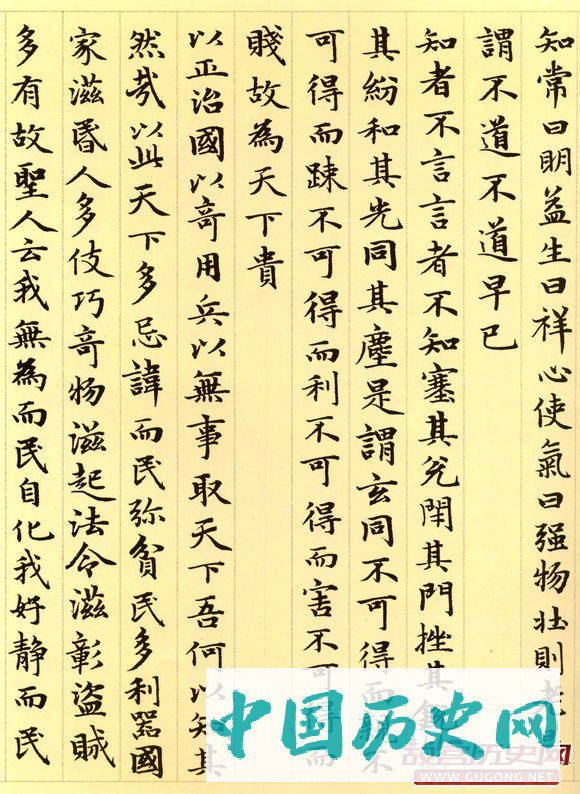 知常曰明益生曰祥心使氣曰强物壯則老
謂不道不道早已
知者不言言者不知塞其兌閇其門挫其銳
其紛和其光同其塵是謂玄同不可得而親不
可得而踈不可得而利不可得而害不可得而
賤故為天下貴
以正治國以竒用兵以無事取天下吾何以知其
然哉以此天下多忌諱而民弥貧民多利器國
家滋昬人多伎巧竒物滋起法令滋彰盜賊
多有故聖人云我無為而民自化我好静而民
中国历史网
故宫历史网
WWW.GUGONG.NET